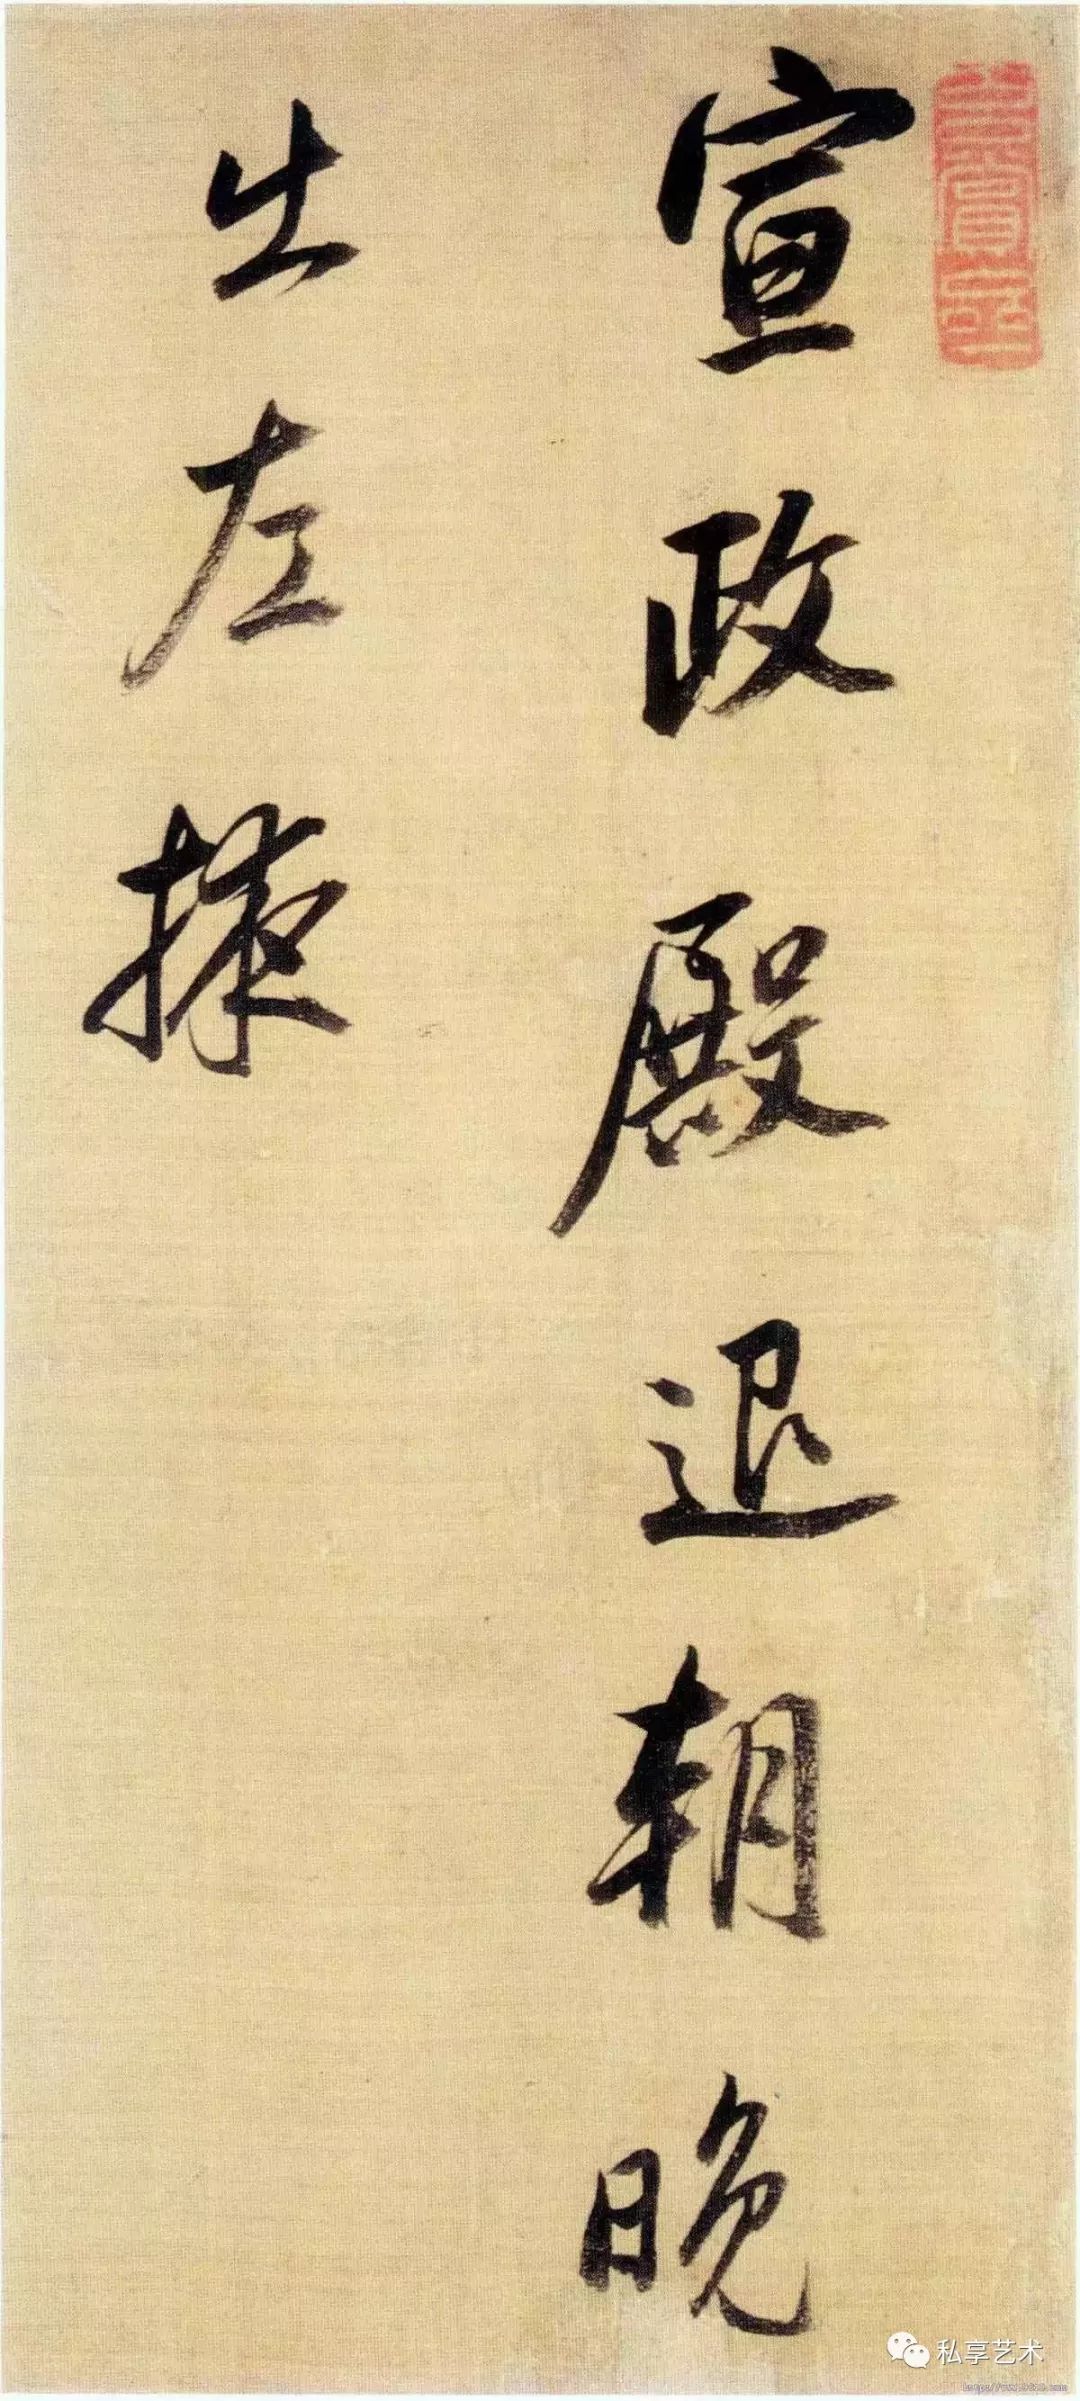 玄賞齋
宣政殿退朝晚
出左掖
私享艺术